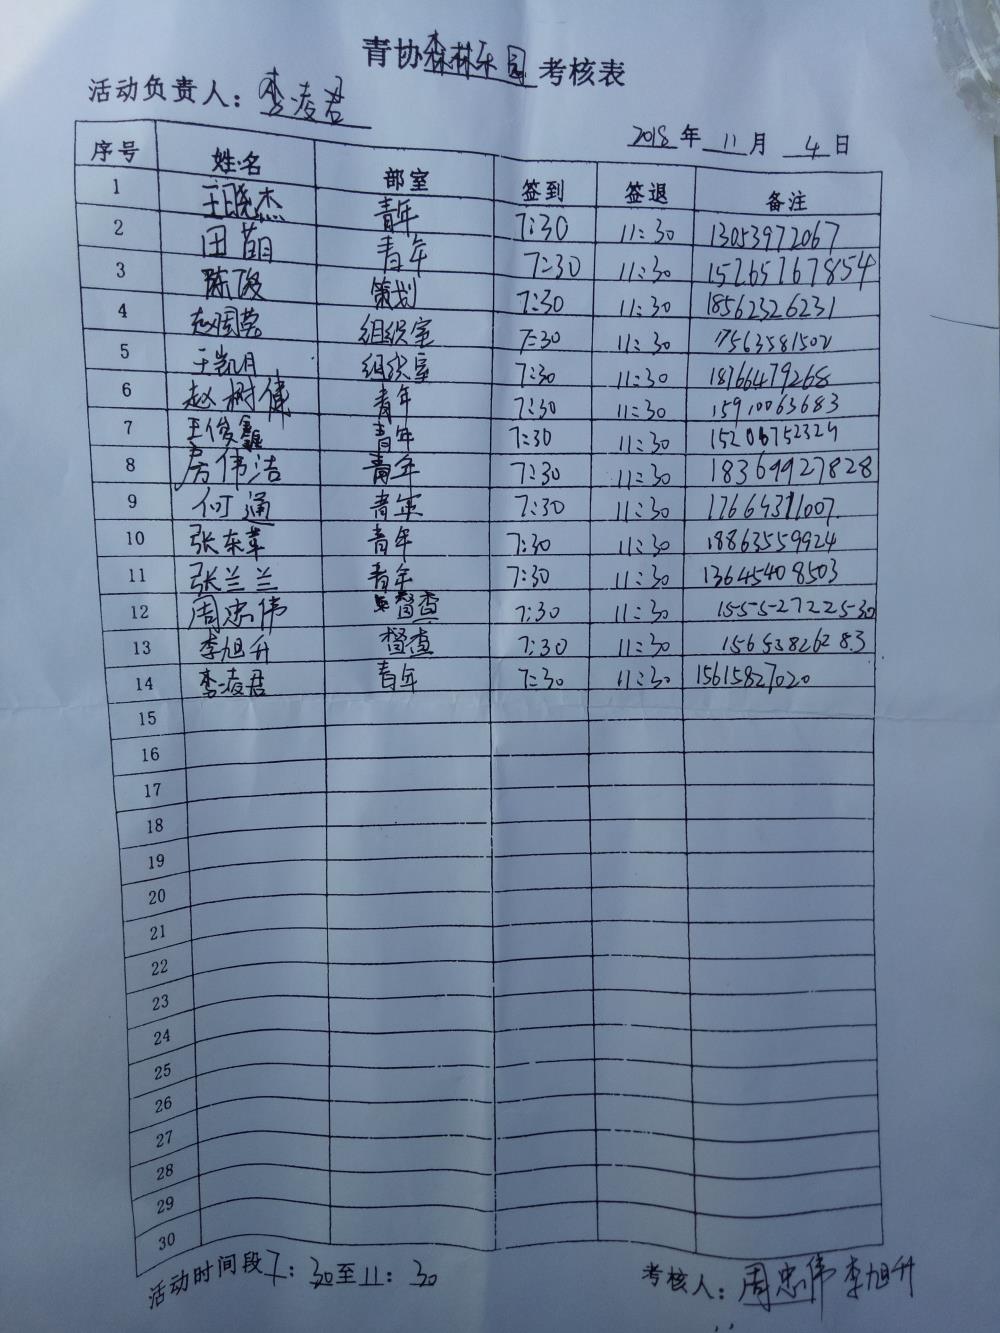 青协森林乐园考核表
活动负责人：李凌君
2018年 11月 4日
序号 姓名 部室 签到 签退 备注
1 王晓杰 青年 7:30 11:30 13053972067
2 田苗 青年 7:30 11:30 15265767854
3 陈俊 策划 7:30 11:30 18562326231
4 赵国蕊 组织室 7:30 11:30 17563581502
5 王凯月 组织室 7:30 11:30 18766479268
6 赵树伟 青年 7:30 11:30 15910063683
7 王俊鑫 青年 7:30 11:30 15206752329
8 房伟洁 青年 7:30 11:30 18369927828
9 何通 青年 7:30 11:30 17664311007
10 张东革 青年 7:30 11:30 18863559924
11 张兰兰 青年 7:30 11:30 13645408503
12 周忠伟 督查 7:30 11:30 15552722530
13 李旭升 督查 7:30 11:30 15653826283
14 李凌君 青年 7:30 11:30 15615827020
15
16
17
18
19
20
21
22
23
24
25
26
27
28
29
30
活动时间段7：30至11：30
考核人：周忠伟 李旭升